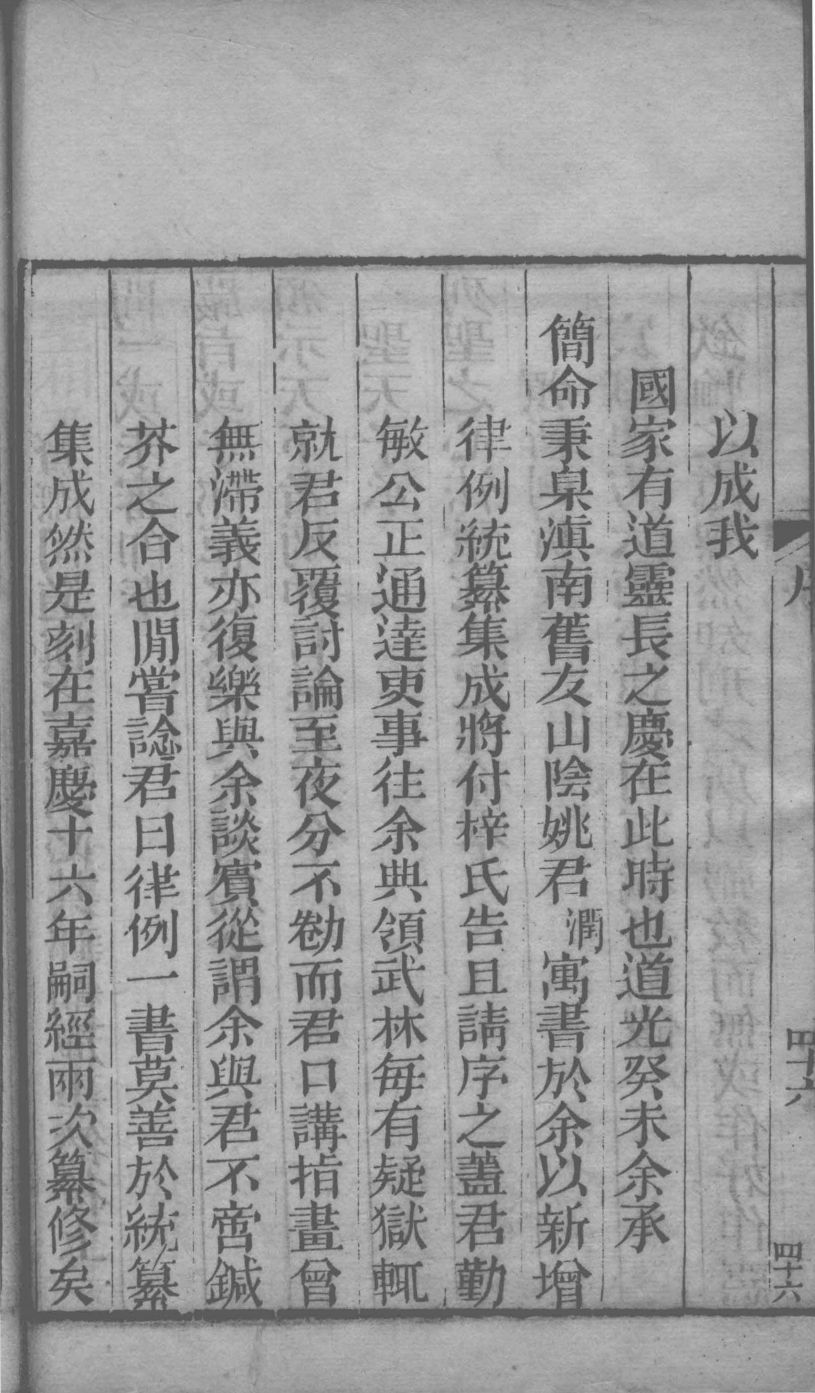 序
四十六
四十六
以成我
國家有道靈長之慶在此時也道光癸未余承
簡命秉臬滇南舊友山陰姚君潤寓書於余以新增
律例統纂集成將付梓氏告且請序之蓋君勤
敏公正通達吏事往余典領武林每有疑獄輒
就君反覆討論至夜分不勌而君口講指畫曾
無滯義亦復樂與余談賓從謂余與君不啻鍼
芥之合也閒嘗諗君曰律例一書莫善於統纂
集成然是刻在嘉慶十六年嗣經兩次纂修矣